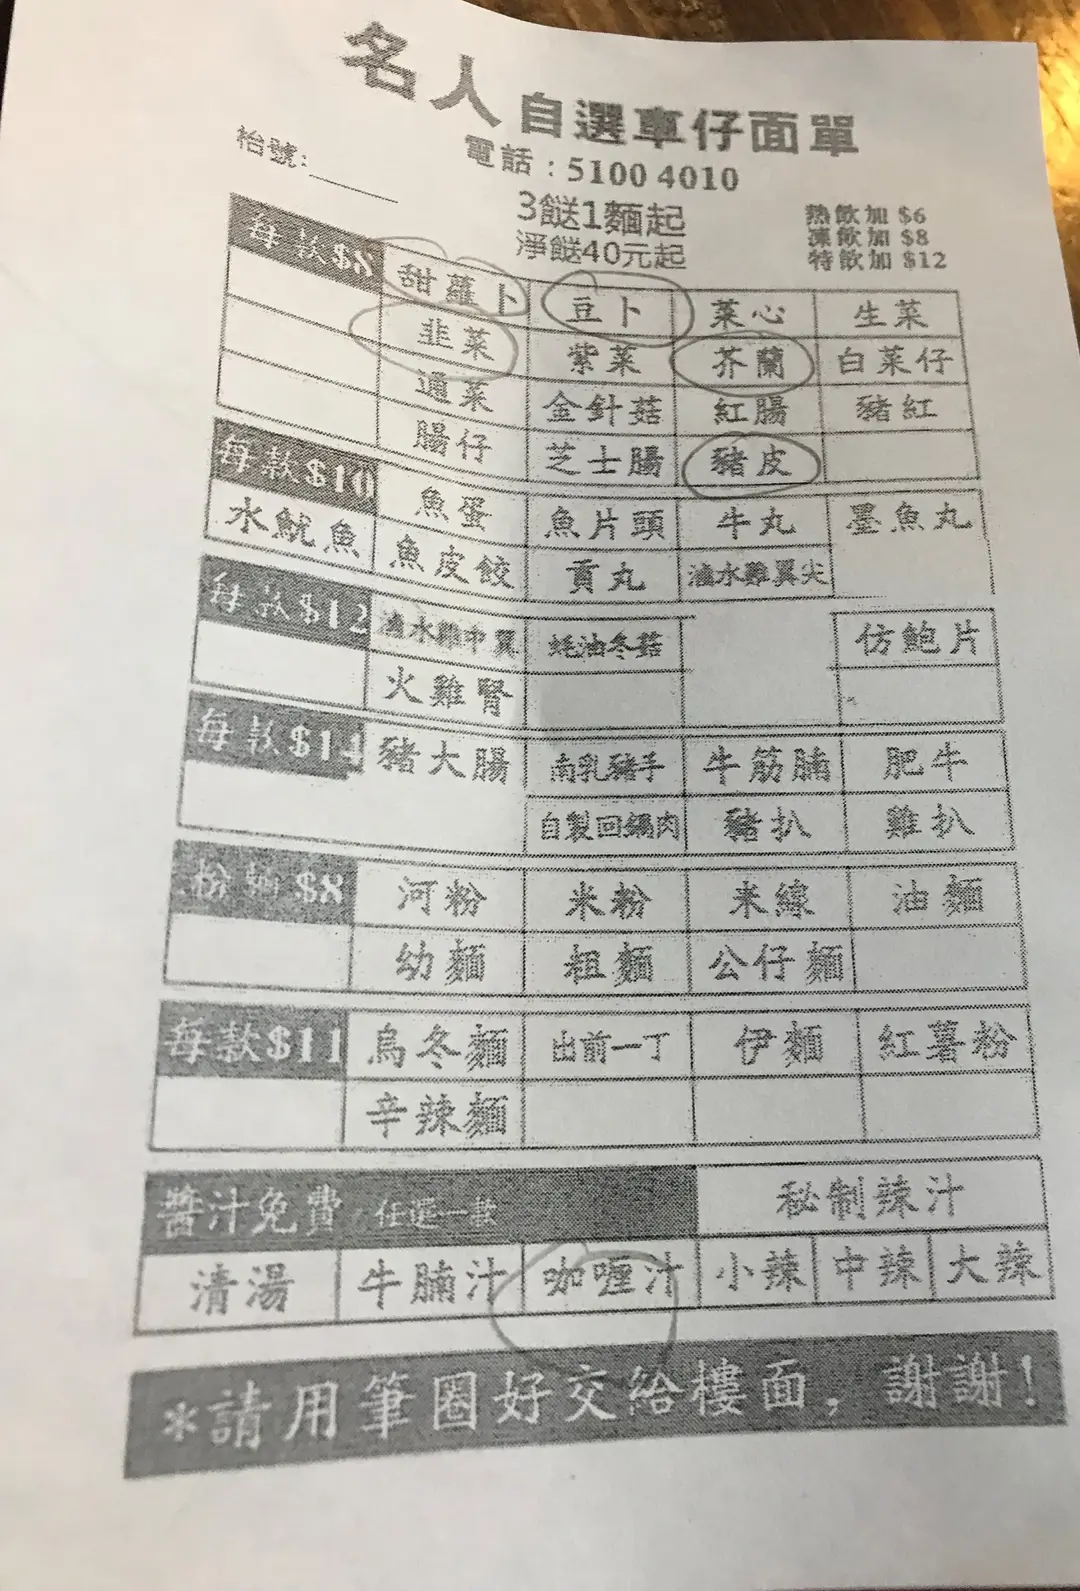 名人自選車仔面單
枱號:
電話：5100 4010
3餸1麵起
淨餸40元起
熱飲加 $6
凍飲加 $8
特飲加 $12
每款$8 甜蘿卜 豆卜 菜心 生菜
韭菜 紫菜 芥蘭 白菜仔
通菜 金針菇 紅腸 豬紅
腸仔 芝士腸 豬皮
每款$10 魚蛋 魚片頭 牛丸 墨魚丸
水魷魚 魚皮餃 貢丸 滷水雞翼尖
每款$12 滷水雞中翼 蚝油冬菇 仿鮑片
火雞腎
每款$14 豬大腸 南乳豬手 牛筋腩 肥牛
自製回鍋肉 豬扒 雞扒
粉麵 $8 河粉 米粉 米線 油麵
幼麵 粗麵 公仔麵
每款$11 烏冬麵 出前一丁 伊麵 紅薯粉
辛辣麵
醬汁免費 任選一款 秘制辣汁
清湯 牛腩汁 咖喱汁 小辣 中辣 大辣
*請用筆圈好交給樓面，謝謝!